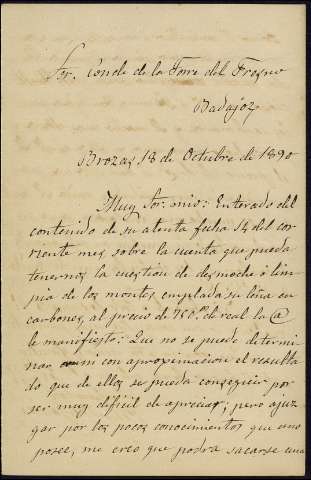 Sor. Conde de la Torre del Fresno
Badajoz
Brozas 18 de Octubre de 1890
Muy Sor. mio: Enterado del
contenido de su atenta fecha 14 del cor
riente mes, sobre la cuenta que pueda
tenernos la cuestion de desmoche ó lim
pia de los montes, emplada su leña en
carbones, al precio de de real la @
le manifiesto: Que no se puede determi
nar ni con aproximacion el resulta
do que de ellos se pueda conseguir por
ser muy dificil de apreciar; pero ajuz
gar por los pocos conocimientos que uno
posee, me creo que podra sacarse una